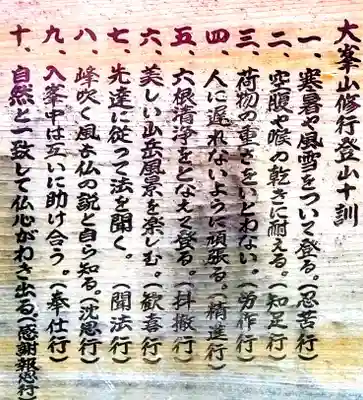 大峯山修行登山十訓
一、寒暑や風雪をついて登る。(忍苦行)
二、空腹や喉の乾きに耐える。(知足行)
三、荷物の重さをいとわない。(労作行)
四、人に遅れないように頑張る。(精進行)
五、六根清浄をとなえて登る。(抖擻行)
六、美しい山岳風景を楽しむ。(歓喜行)
七、先達に従って法を聞く。(聞法行)
八、峰吹く風も仏の説と自ら知る。(沈思行)
九、入峯中は互いに助け合う。(奉仕行)
十、自然と一致して仏心がわき出る。(感謝報恩行